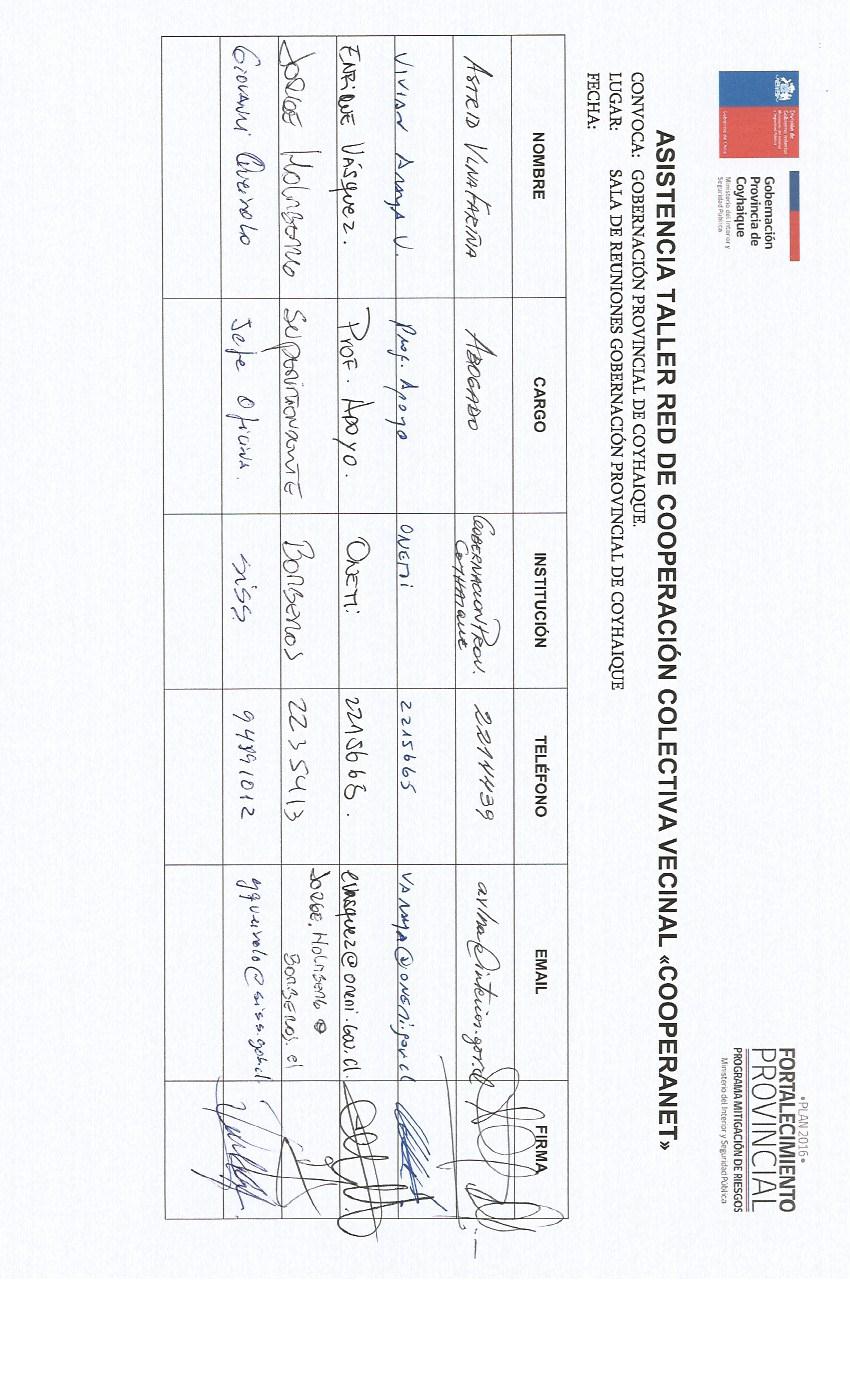 División de
Gobierno Interior
Ministerio del Interior
y Seguridad Pública
Gobierno de Chile
Gobernación
Provincia de
Coyhaique
Ministerio del Interior y
Seguridad Pública
•PLAN 2016•
FORTALECIMIENTO
PROVINCIAL
PROGRAMA MITIGACIÓN DE RIESGOS
Ministerio del Interior y Seguridad Pública
ASISTENCIA TALLER RED DE COOPERACIÓN COLECTIVA VECINAL «COOPERANET»
CONVOCA: GOBERNACIÓN PROVINCIAL DE COYHAIQUE.
LUGAR: SALA DE REUNIONES GOBERNACIÓN PROVINCIAL DE COYHAIQUE
FECHA:
NOMBRE CARGO INSTITUCIÓN TELÉFONO EMAIL FIRMA
ASTRID VLNA FARIÑA ABOGADO GOBERNACION PROV. COYHAIQUE 2214439 avlna@interior.gov.cl
VIVIAN Araya V. Prof. Apoyo ONEMI 2215665 VARAYA@ONEMI.gov.cl
ENRIQUE VÁSQUEZ. PROF. APOYO. ONEMI 2215668. evasquez@onemi.gov.cl.
JORGE HOLMBERG SUPERINTENDENTE BOMBEROS 2235413 JORGE.HOLMBERG@
BOMBEROS.cl
GIOVANNI Queirolo Jefe Oficina. SISS 94891012 gqueirolo@siss.gob.cl